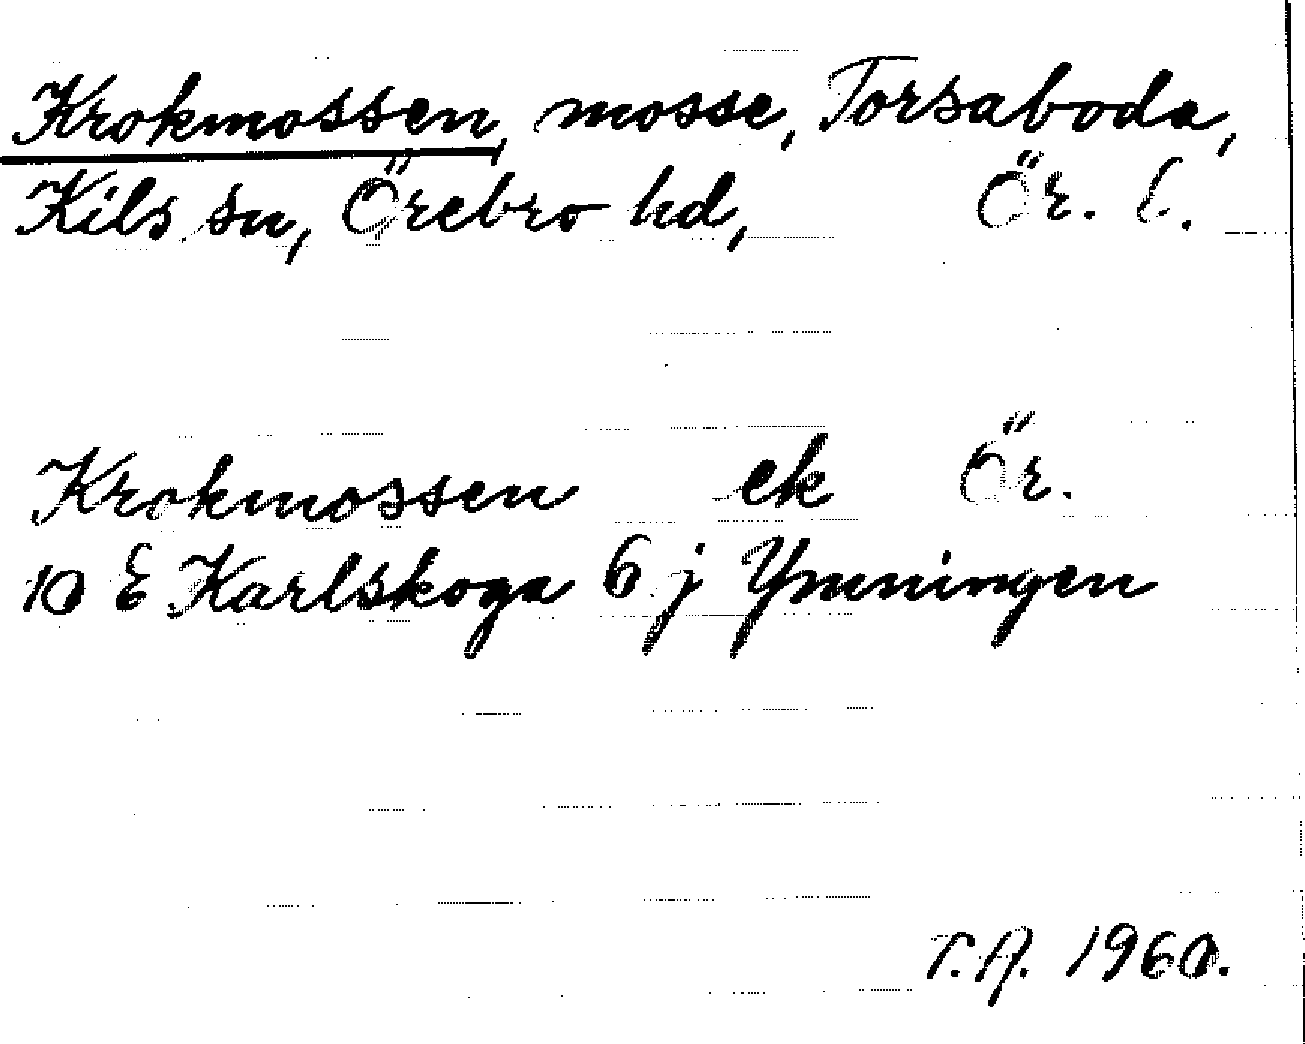 Krokmossen, mosse, Torsaboda,
Kils sn, Örebro hd, Ör. l.
Krokmossen ek Ör.
10 E Karlskoga 6 j Ymningen
T.A. 1960.